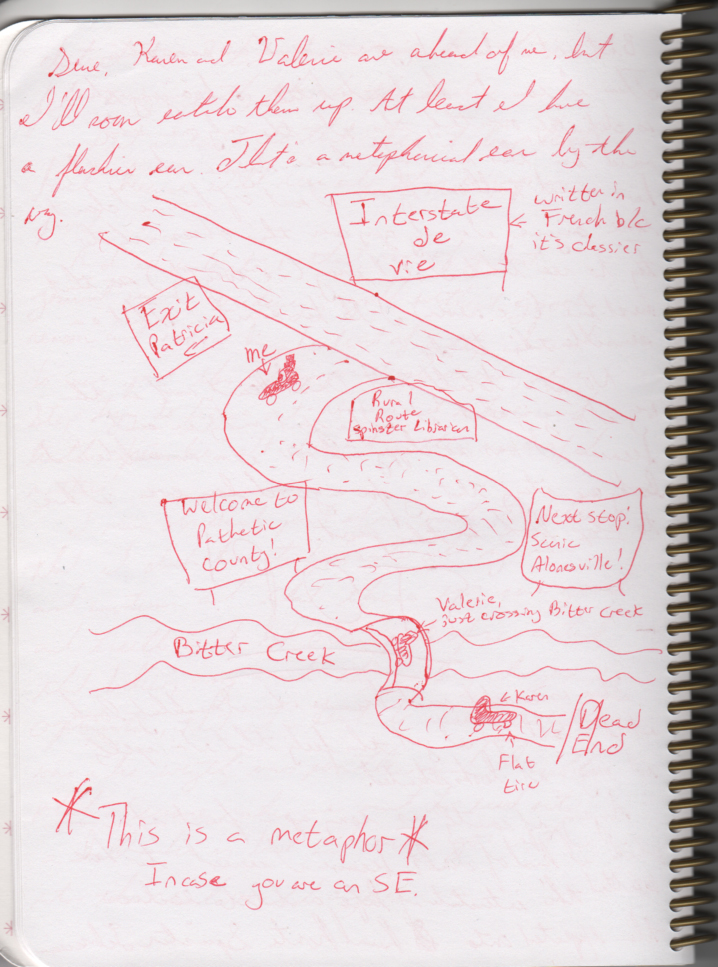 Sure, Karen and Valerie are ahead of me, but
I'll soon catch them up. At least I have
a flashier car. That's a metaphorical car by the
way.
Interstate
de
vie
written in
French b/c
it's classier
Exit
Patricia
me
Rural
Route
Spinster Librarian
Welcome to
Pathetic
County!
Next stop!
Scenic
Alonesville!
Valerie,
just crossing Bitter Creek
Bitter Creek
Karen
Dead
End
Flat
tire
*This is a metaphor*
Incase you are an SE.